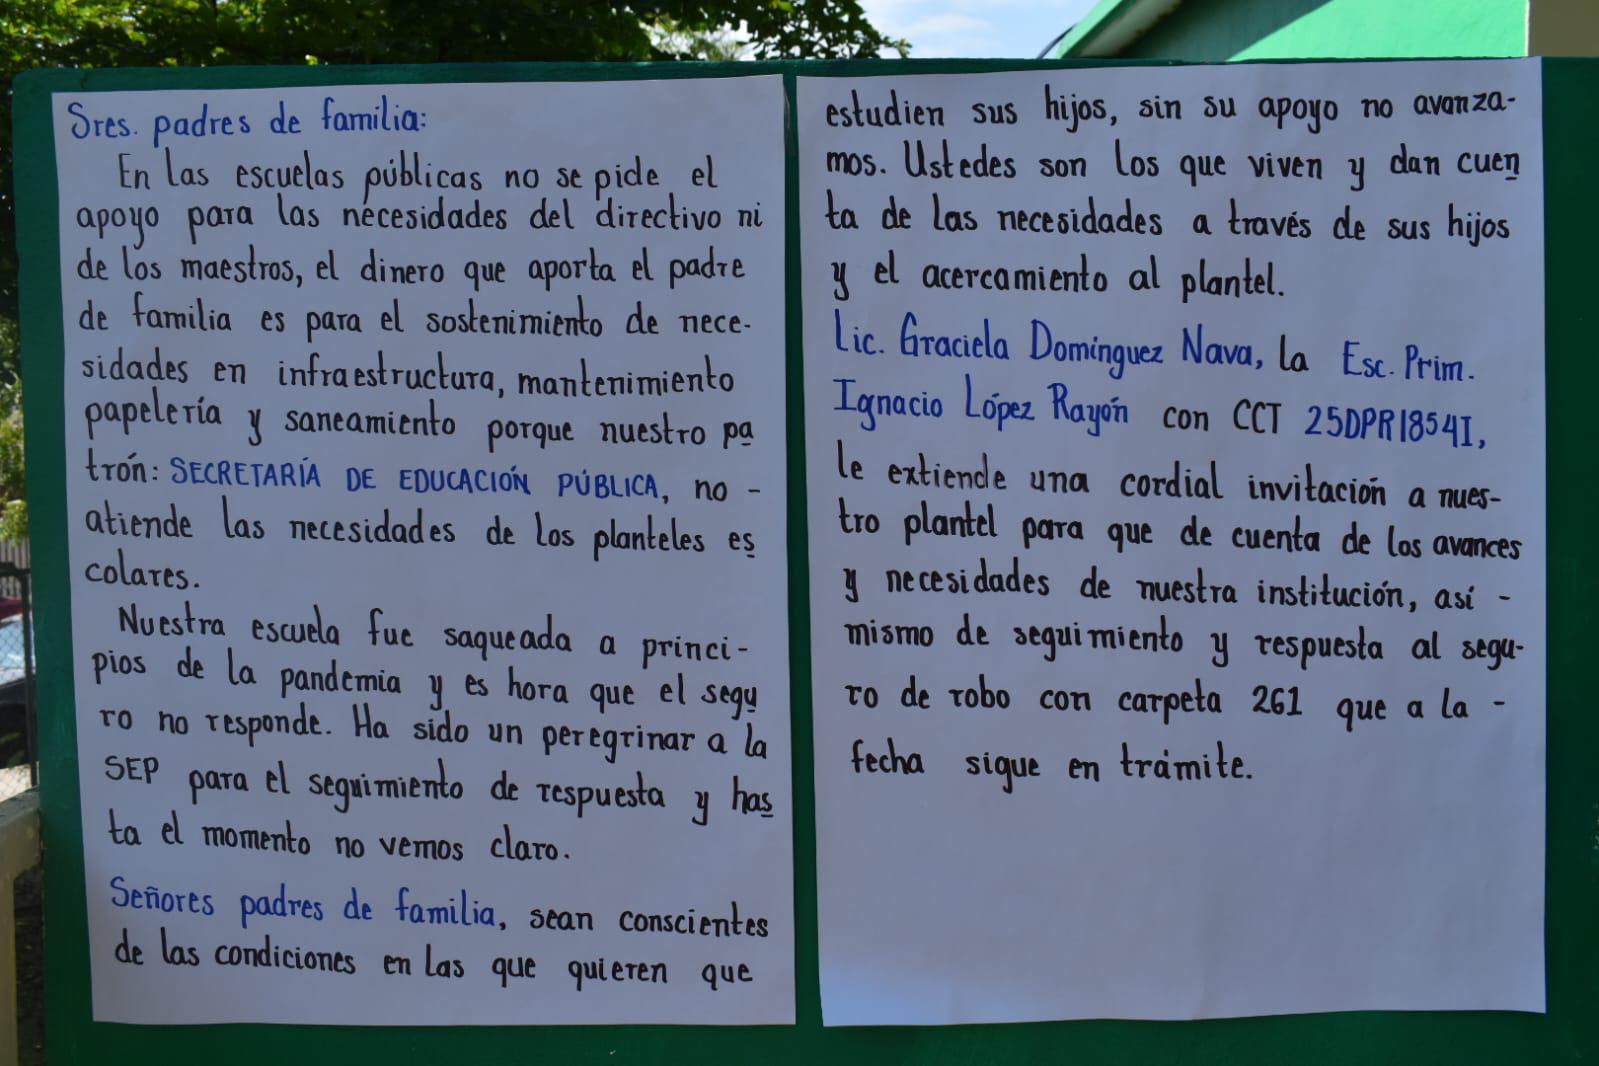 Sres. padres de familia:
En las escuelas públicas no se pide el
apoyo para las necesidades del directivo ni
de los maestros, el dinero que aporta el padre
de familia es para el sostenimiento de nece-
sidades en infraestructura, mantenimiento
papelería y saneamiento porque nuestro pa
trón: SECRETARÍA DE EDUCACIÓN PÚBLICA, no -
atiende las necesidades de los planteles es
colares.
Nuestra escuela fue saqueada a princi-
pios de la pandemia y es hora que el segu
ro no responde. Ha sido un peregrinar a la
SEP para el seguimiento de respuesta y has
ta el momento no vemos claro.
Señores padres de familia, sean conscientes
de las condiciones en las que quieren que
estudien sus hijos, sin su apoyo no avanza-
mos. Ustedes son los que viven y dan cuen
ta de las necesidades a través de sus hijos
y el acercamiento al plantel.
Lic. Graciela Domínguez Nava, la Esc. Prim.
Ignacio López Rayón con CCT 25DPR1854I,
le extiende una cordial invitación a nues-
tro plantel para que de cuenta de los avances
y necesidades de nuestra institución, así -
mismo de seguimiento y respuesta al segu-
ro de robo con carpeta 261 que a la -
fecha sigue en trámite.